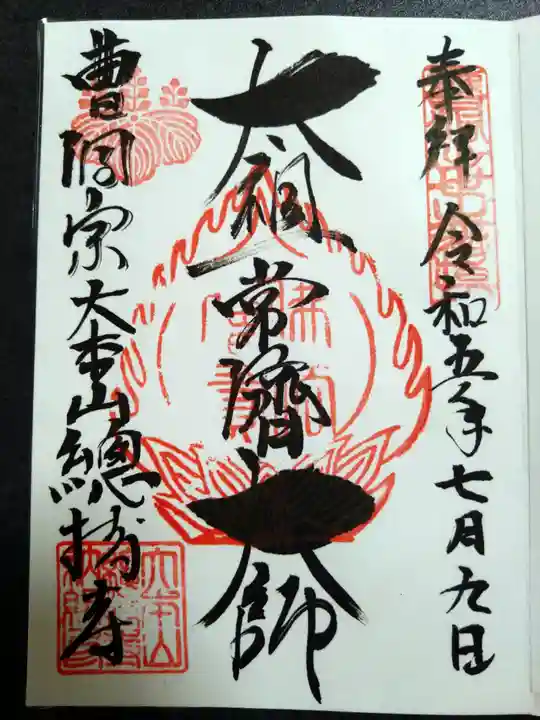 奉拜 令和五年七月九日
太祖常濟大師
曹洞宗大本山總持寺